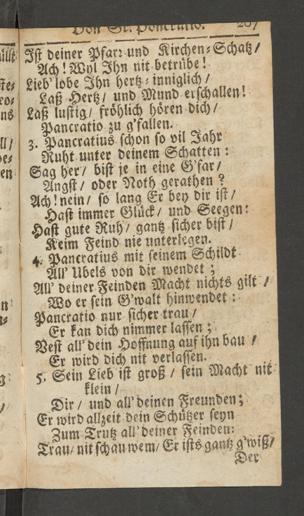 Von St. Pancratio. 267
Ist deiner Pfarr-und Kirchen-Schatz/
Ach! Wyl Ihn nit betrübe!
Lieb' lobe Ihn hertz-inniglich/
Laß Hertz/ und Mund erschallen!
Laß lustig/ fröhlich hören dich/
Pancratio zu g'fallen.
3. Pancratius schon so vil Jahr
Ruht unter deinem Schatten:
Sag her/ bist je in eine G'far/
Angst/ oder Noth gerathen?
Ach! nein/ so lang Er bey dir ist/
Hast immer Glück/ und Seegen:
Hast gute Ruh/ gantz sicher bist/
Keim Feind nie unterlegen.
4. Pancratius mit seinem Schildt
All' Ubels von dir wendet;
All' deiner Feinden Macht nichts gilt/
Wo er sein G'walt hinwendet:
Pancratio nur sicher trau/
Er kan dich nimmer lassen;
Vest all' dein Hoffnung auf ihn bau/
Er wird dich nit verlassen.
5. Sein Lieb ist groß/ sein Macht nit
klein/
Dir/ und all' deinen Freunden;
Er wird allzeit dein Schützer seyn
Zum Trutz all' deiner Feinden:
Trau/ nit schau wem/ Er ists gantz g'wiß/
Der